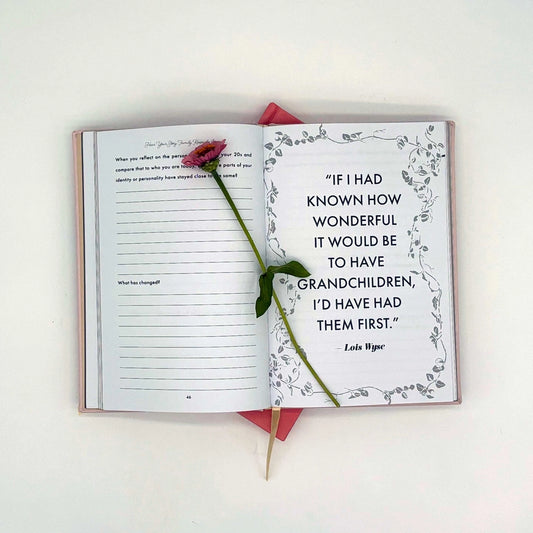 Hear Your Story
When you reflect on the your 20s and
compare that to who you are today, parts of your
identity or personality have stayed close to same?
What has changed?
46
“IF I HAD
KNOWN HOW
WONDERFUL
IT WOULD BE
TO HAVE
GRANDCHILDREN,
I’D HAVE HAD
THEM FIRST.”
– Lois Wyse